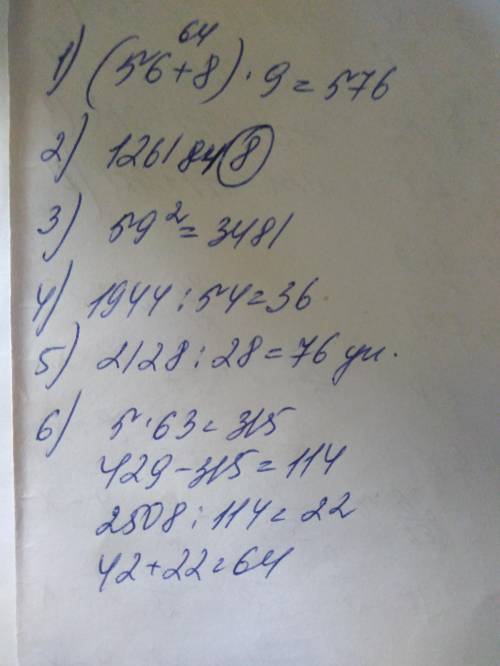 64
1) (56+8)·9=576
2) 1261848
3) 59²=3481
4) 1944:54=36
5) 2128:28=76 уч.
6) 5·63=315
429-315=114
2508:114=22
42+22=64